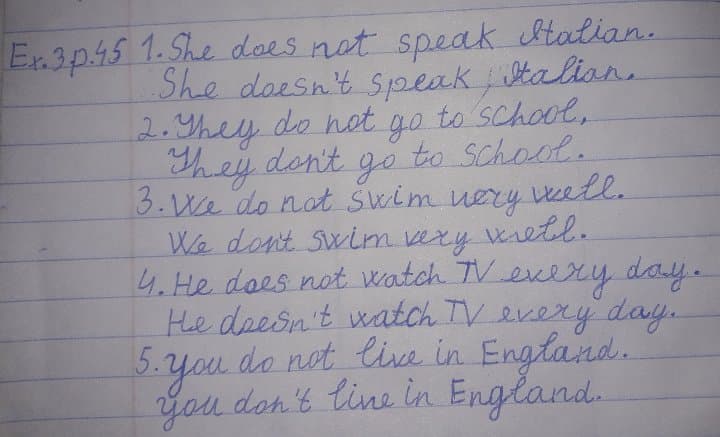 Ex.3 p.45 1. She does not speak Italian.
She doesn't speak Italian.
2. They do not go to school.
They don't go to school.
3. We do not swim very well.
We don't swim very well.
4. He does not watch TV every day.
He doesn't watch TV every day.
5. You do not live in England.
You don't live in England.